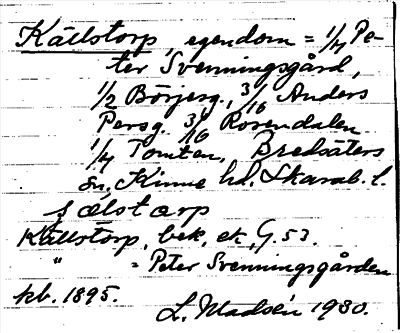 Källstorp egendom = 1/4 Pe-
ter Svenningsgård,
1/2 Börjesg., 3/16 Anders
Persg. 3/16 Rosendalen
1/4 Tomten, Bredsäters
sn, Kinne hd. Skarab. l.
sälstorp
Källstorp, bek, ek, G. 53.
" = Peter Svenningsgården
kb. 1895.
L. Madsén 1930.